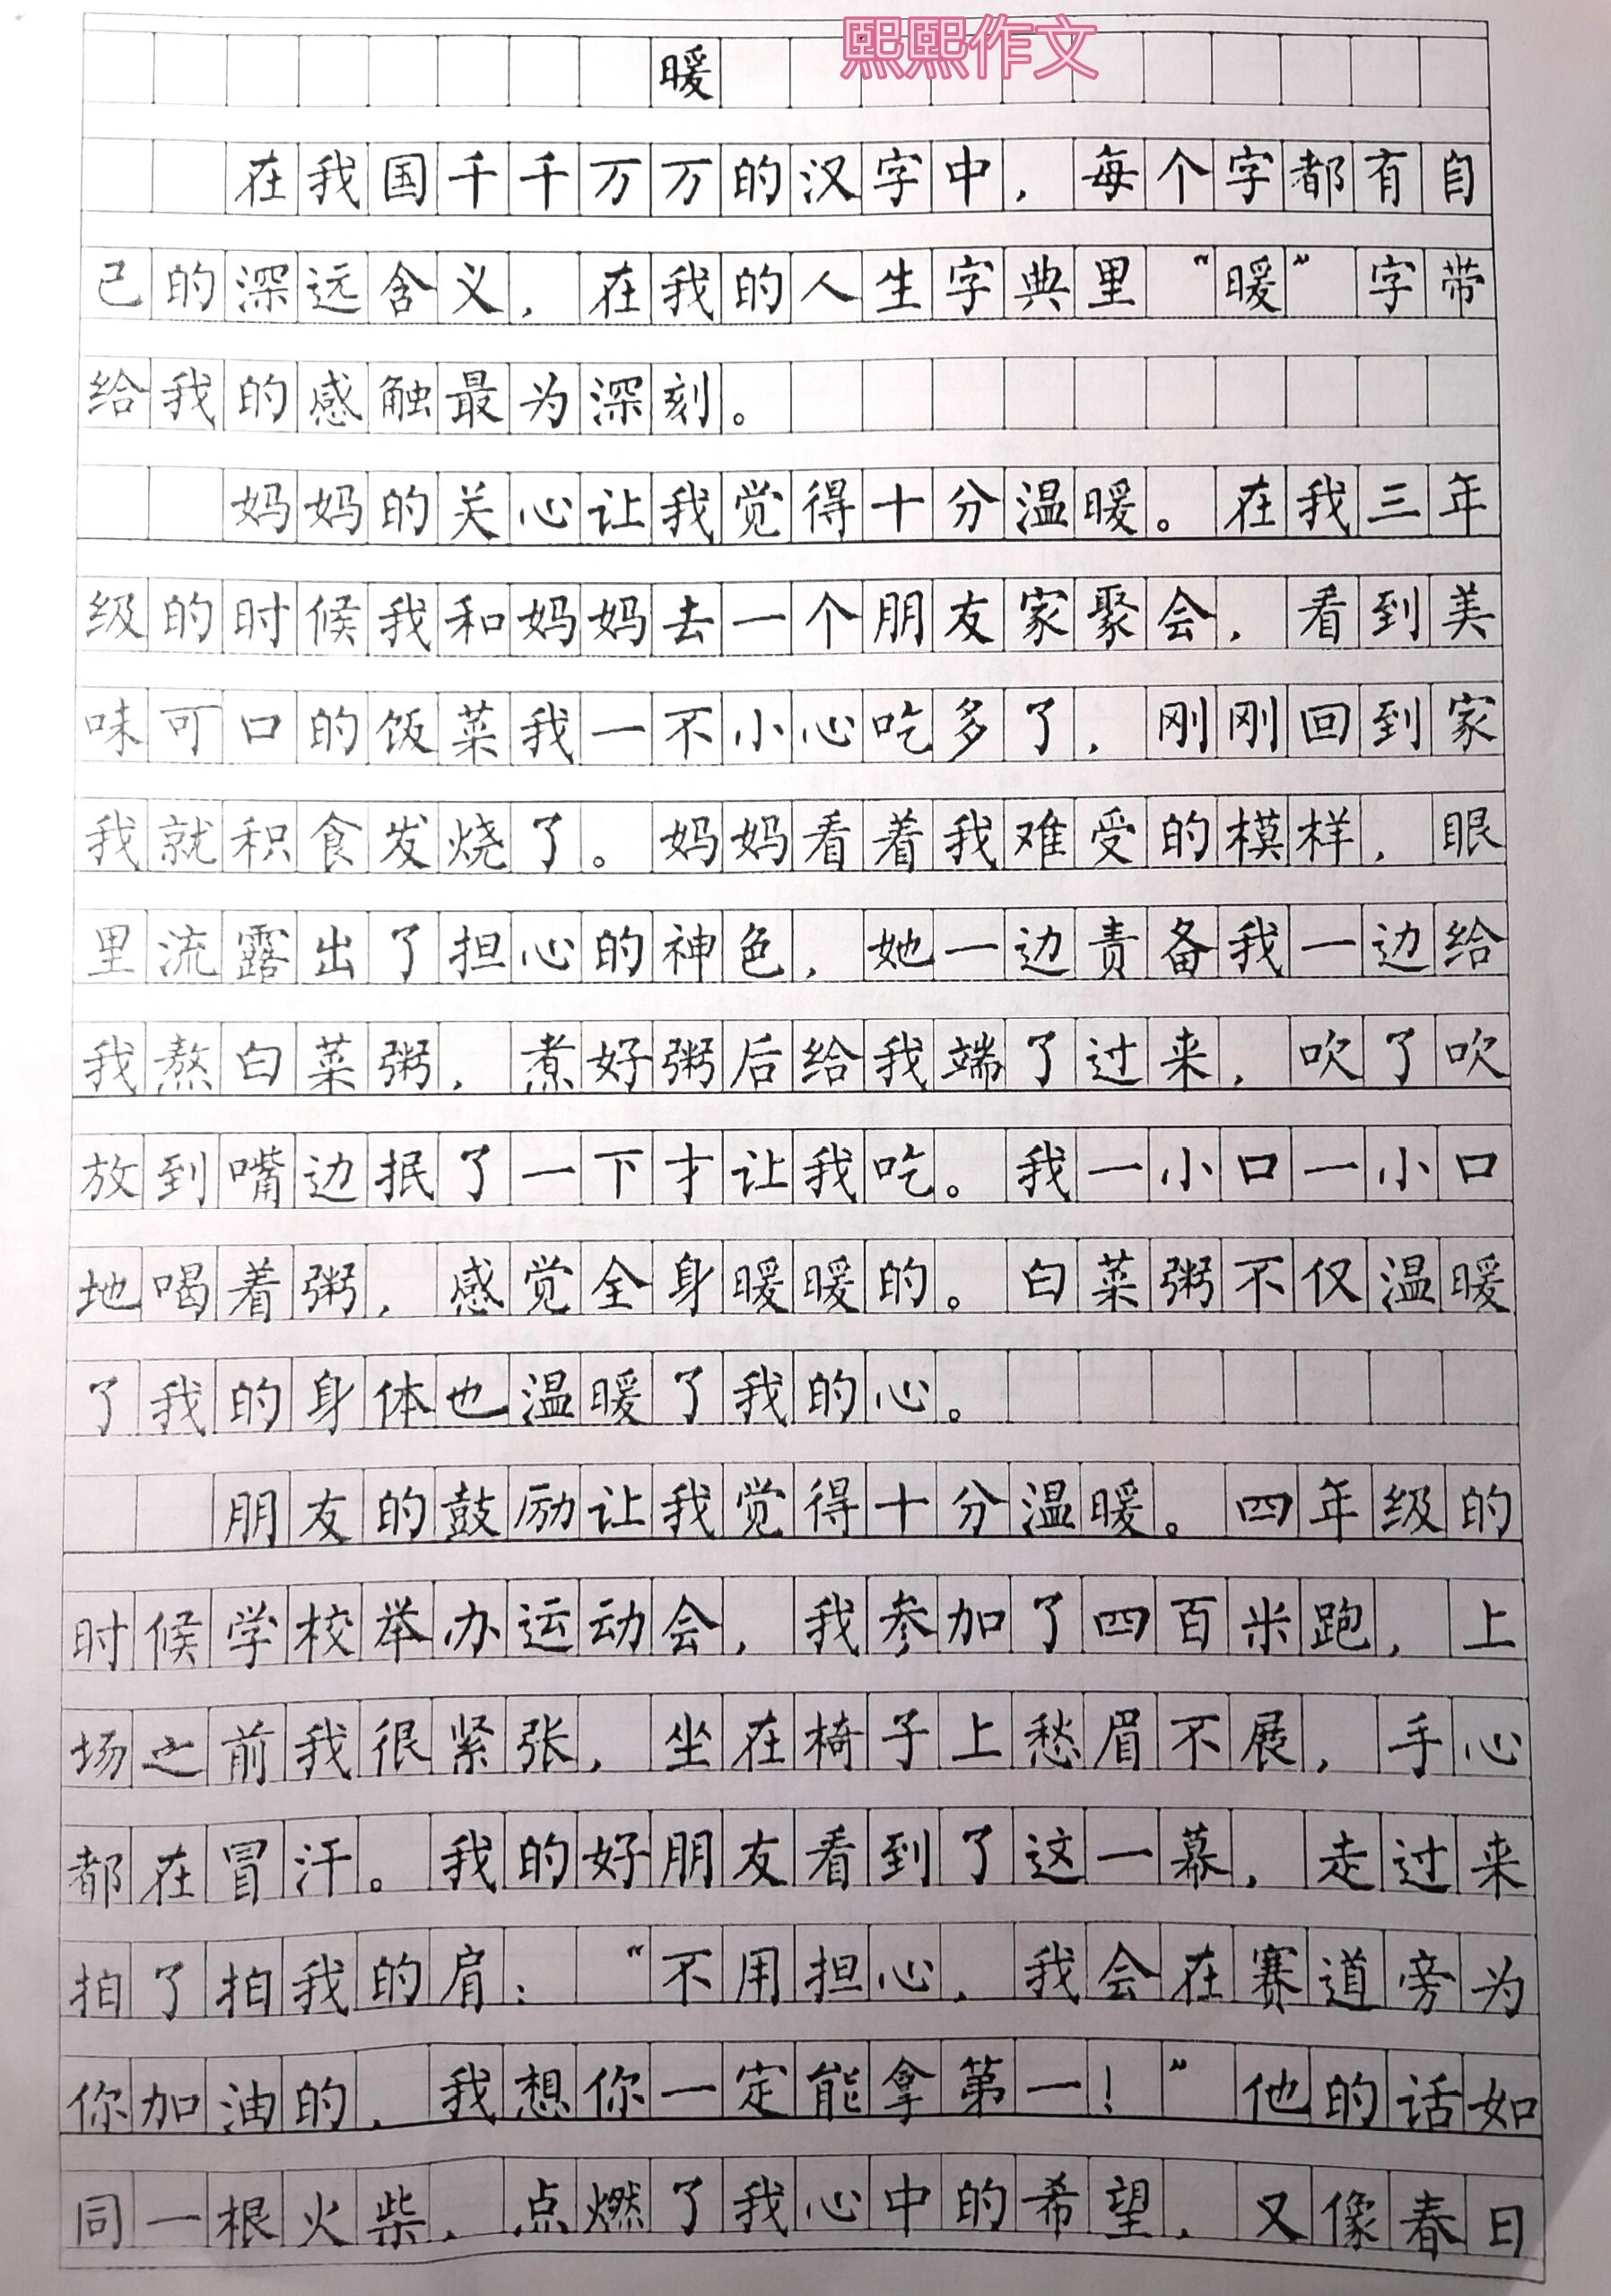 熙熙作文
暖
在我国千千万万的汉字中，每个字都有自
己的深远含义，在我的人生字典里“暖”字带
给我的感触最为深刻。
妈妈的关心让我觉得十分温暖。在我三年
级的时候我和妈妈去一个朋友家聚会，看到美
味可口的饭菜我一不小心吃多了，刚刚回到家
我就积食发烧了。妈妈看着我难受的模样，眼
里流露出了担心的神色，她一边责备我一边给
我熬白菜粥，煮好粥后给我端了过来，吹了吹
放到嘴边抿了一下才让我吃。我一小口一小口
地喝着粥，感觉全身暖暖的。白菜粥不仅温暖
了我的身体也温暖了我的心。
朋友的鼓励让我觉得十分温暖。四年级的
时候学校举办运动会，我参加了四百米跑，上
场之前我很紧张，坐在椅子上愁眉不展，手心
都在冒汗。我的好朋友看到了这一幕，走过来
拍了拍我的肩：“不用担心，我会在赛道旁为
你加油的，我想你一定能拿第一！”他的话如
同一根火柴，点燃了我心中的希望，又像春日